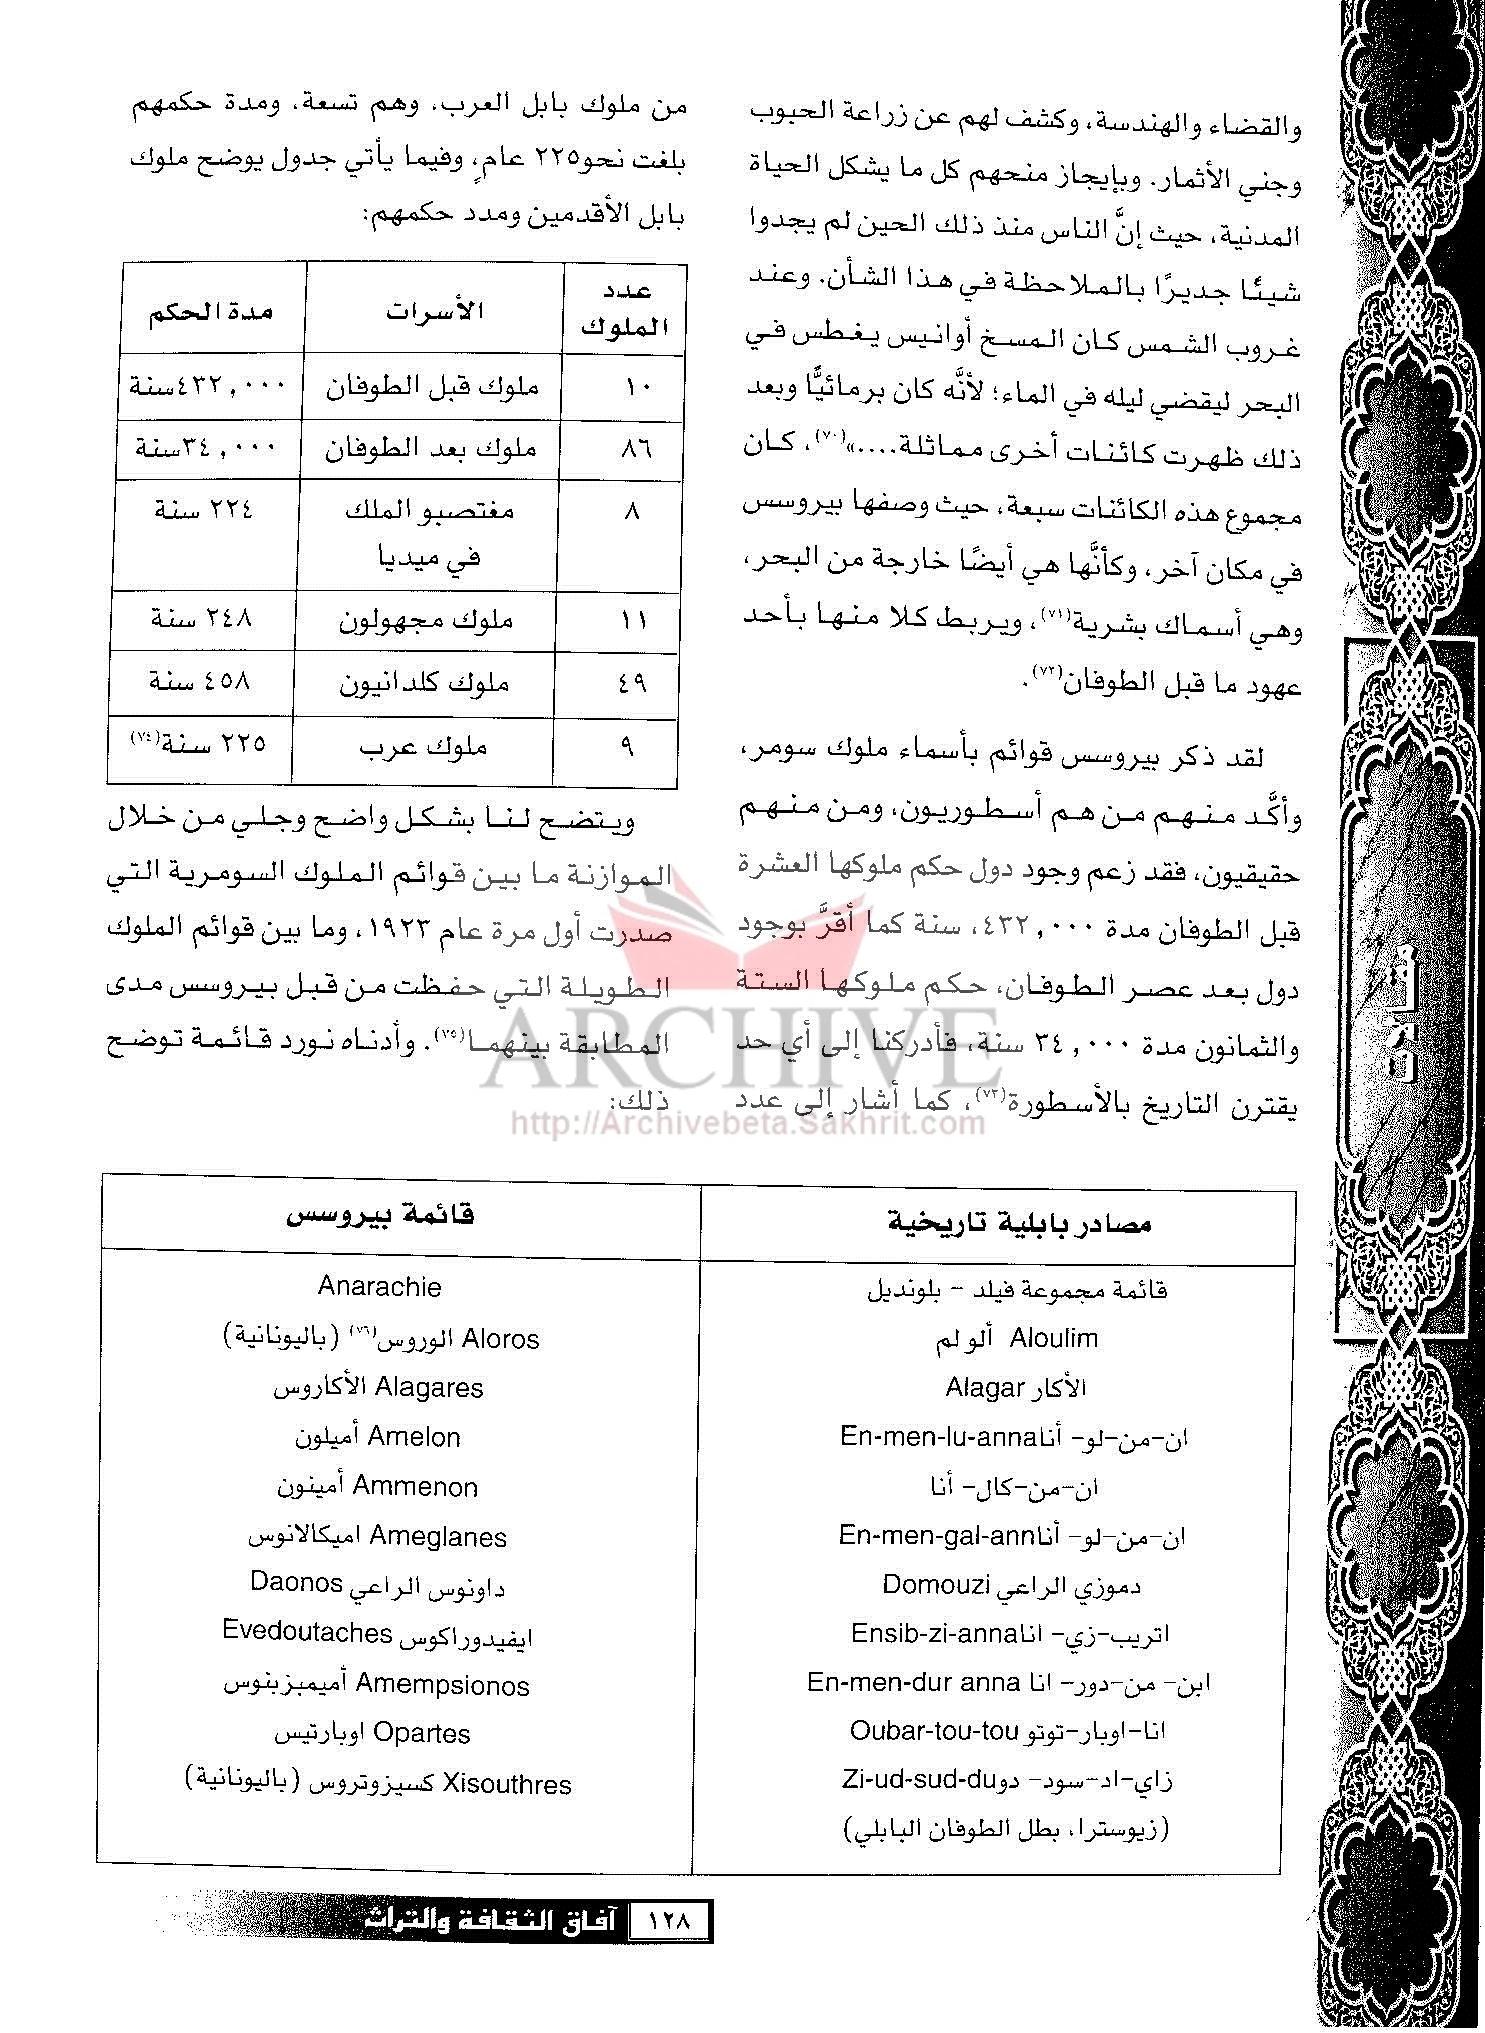 والقضاء والهندسة، وكشف لهم عن زراعة الحبوب
وجني الأثمار. وبإيجاز منحهم كل ما يشكل الحياة
المدنية، حيث إنَّ الناس منذ ذلك الحين لم يجدوا
شيئًا جديرًا بالملاحظة في هذا الشأن. وعند
غروب الشمس كان المسخ أوانيس يغطس في
البحر ليقضي ليله في الماء؛ لأنَّه كان برمائيًّا وبعد
ذلك ظهرت كائنات أخرى مماثلة....»(٧٠)، كان
مجموع هذه الكائنات سبعة، حيث وصفها بيروسس
في مكان آخر، وكأنَّها هي أيضًا خارجة من البحر،
وهي أسماك بشرية(٧١)، ويربط كلا منها بأحد
عهود ما قبل الطوفان(٧٢).
لقد ذكر بيروسس قوائم بأسماء ملوك سومر،
وأكَّد منهم من هم أسطوريون، ومن منهم
حقيقيون، فقد زعم وجود دول حكم ملوكها العشرة
قبل الطوفان مدة ٤٣٢,٠٠٠، سنة كما أقرَّ بوجود
دول بعد عصر الطوفان، حكم ملوكها الستة
والثمانون مدة ٣٤,٠٠٠ سنة، فأدركنا إلى أي حد
يقترن التاريخ بالأسطورة(٧٣)، كما أشار إلى عدد
من ملوك بابل العرب، وهم تسعة، ومدة حكمهم
بلغت نحو٢٢٥ عامٍ، وفيما يأتي جدول يوضح ملوك
بابل الأقدمين ومدد حكمهم:
عدد الملوك الأسرات مدة الحكم
١٠ ملوك قبل الطوفان ٤٣٢,٠٠٠سنة
٨٦ ملوك بعد الطوفان ٣٤,٠٠٠سنة
٨ مغتصبو الملك ٢٢٤ سنة
في ميديا
١١ ملوك مجهولون ٢٤٨ سنة
٤٩ ملوك كلدانيون ٤٥٨ سنة
٩ ملوك عرب ٢٢٥ سنة(٧٤)
ويتضح لنا بشكل واضح وجلي من خلال
الموازنة ما بين قوائم الملوك السومرية التي
صدرت أول مرة عام ١٩٢٣، وما بين قوائم الملوك
الطويلة التي حفظت من قبل بيروسس مدى
المطابقة بينهما(٧٥). وأدناه نورد قائمة توضح
ذلك:
ARCHIVE
http://Archivebeta.Sakhrit.com
مصادر بابلية تاريخية قائمة بيروسس
قائمة مجموعة فيلد - بلونديل Anarachie
Aloulim ألو لم Aloros الوروس(٧٦) (باليونانية)
الأكار Alagar Alagares الأكاروس
ان-من-لو- أناEn-men-lu-anna Amelon أميلون
ان-من-كال- أنا Ammenon أمينون
ان-من-لو- أناEn-men-gal-ann Ameglanes اميكالانوس
دموزي الراعي Domouzi داونوس الراعي Daonos
اتريب-زي- اناEnsib-zi-anna ايفيدوراكوس Evedoutaches
ابن- من-دور- انا En-men-dur anna Amempsionos أميمبزينوس
انا-اوبار-توتو Oubar-tou-tou Opartes اوبارتيس
زاي-اد-سود- دوZi-ud-sud-du Xisouthres كسيزوتروس (باليونانية)
(زيوسترا، بطل الطوفان البابلي)
مقالات
١٢٨ آفاق الثقافة والتراث